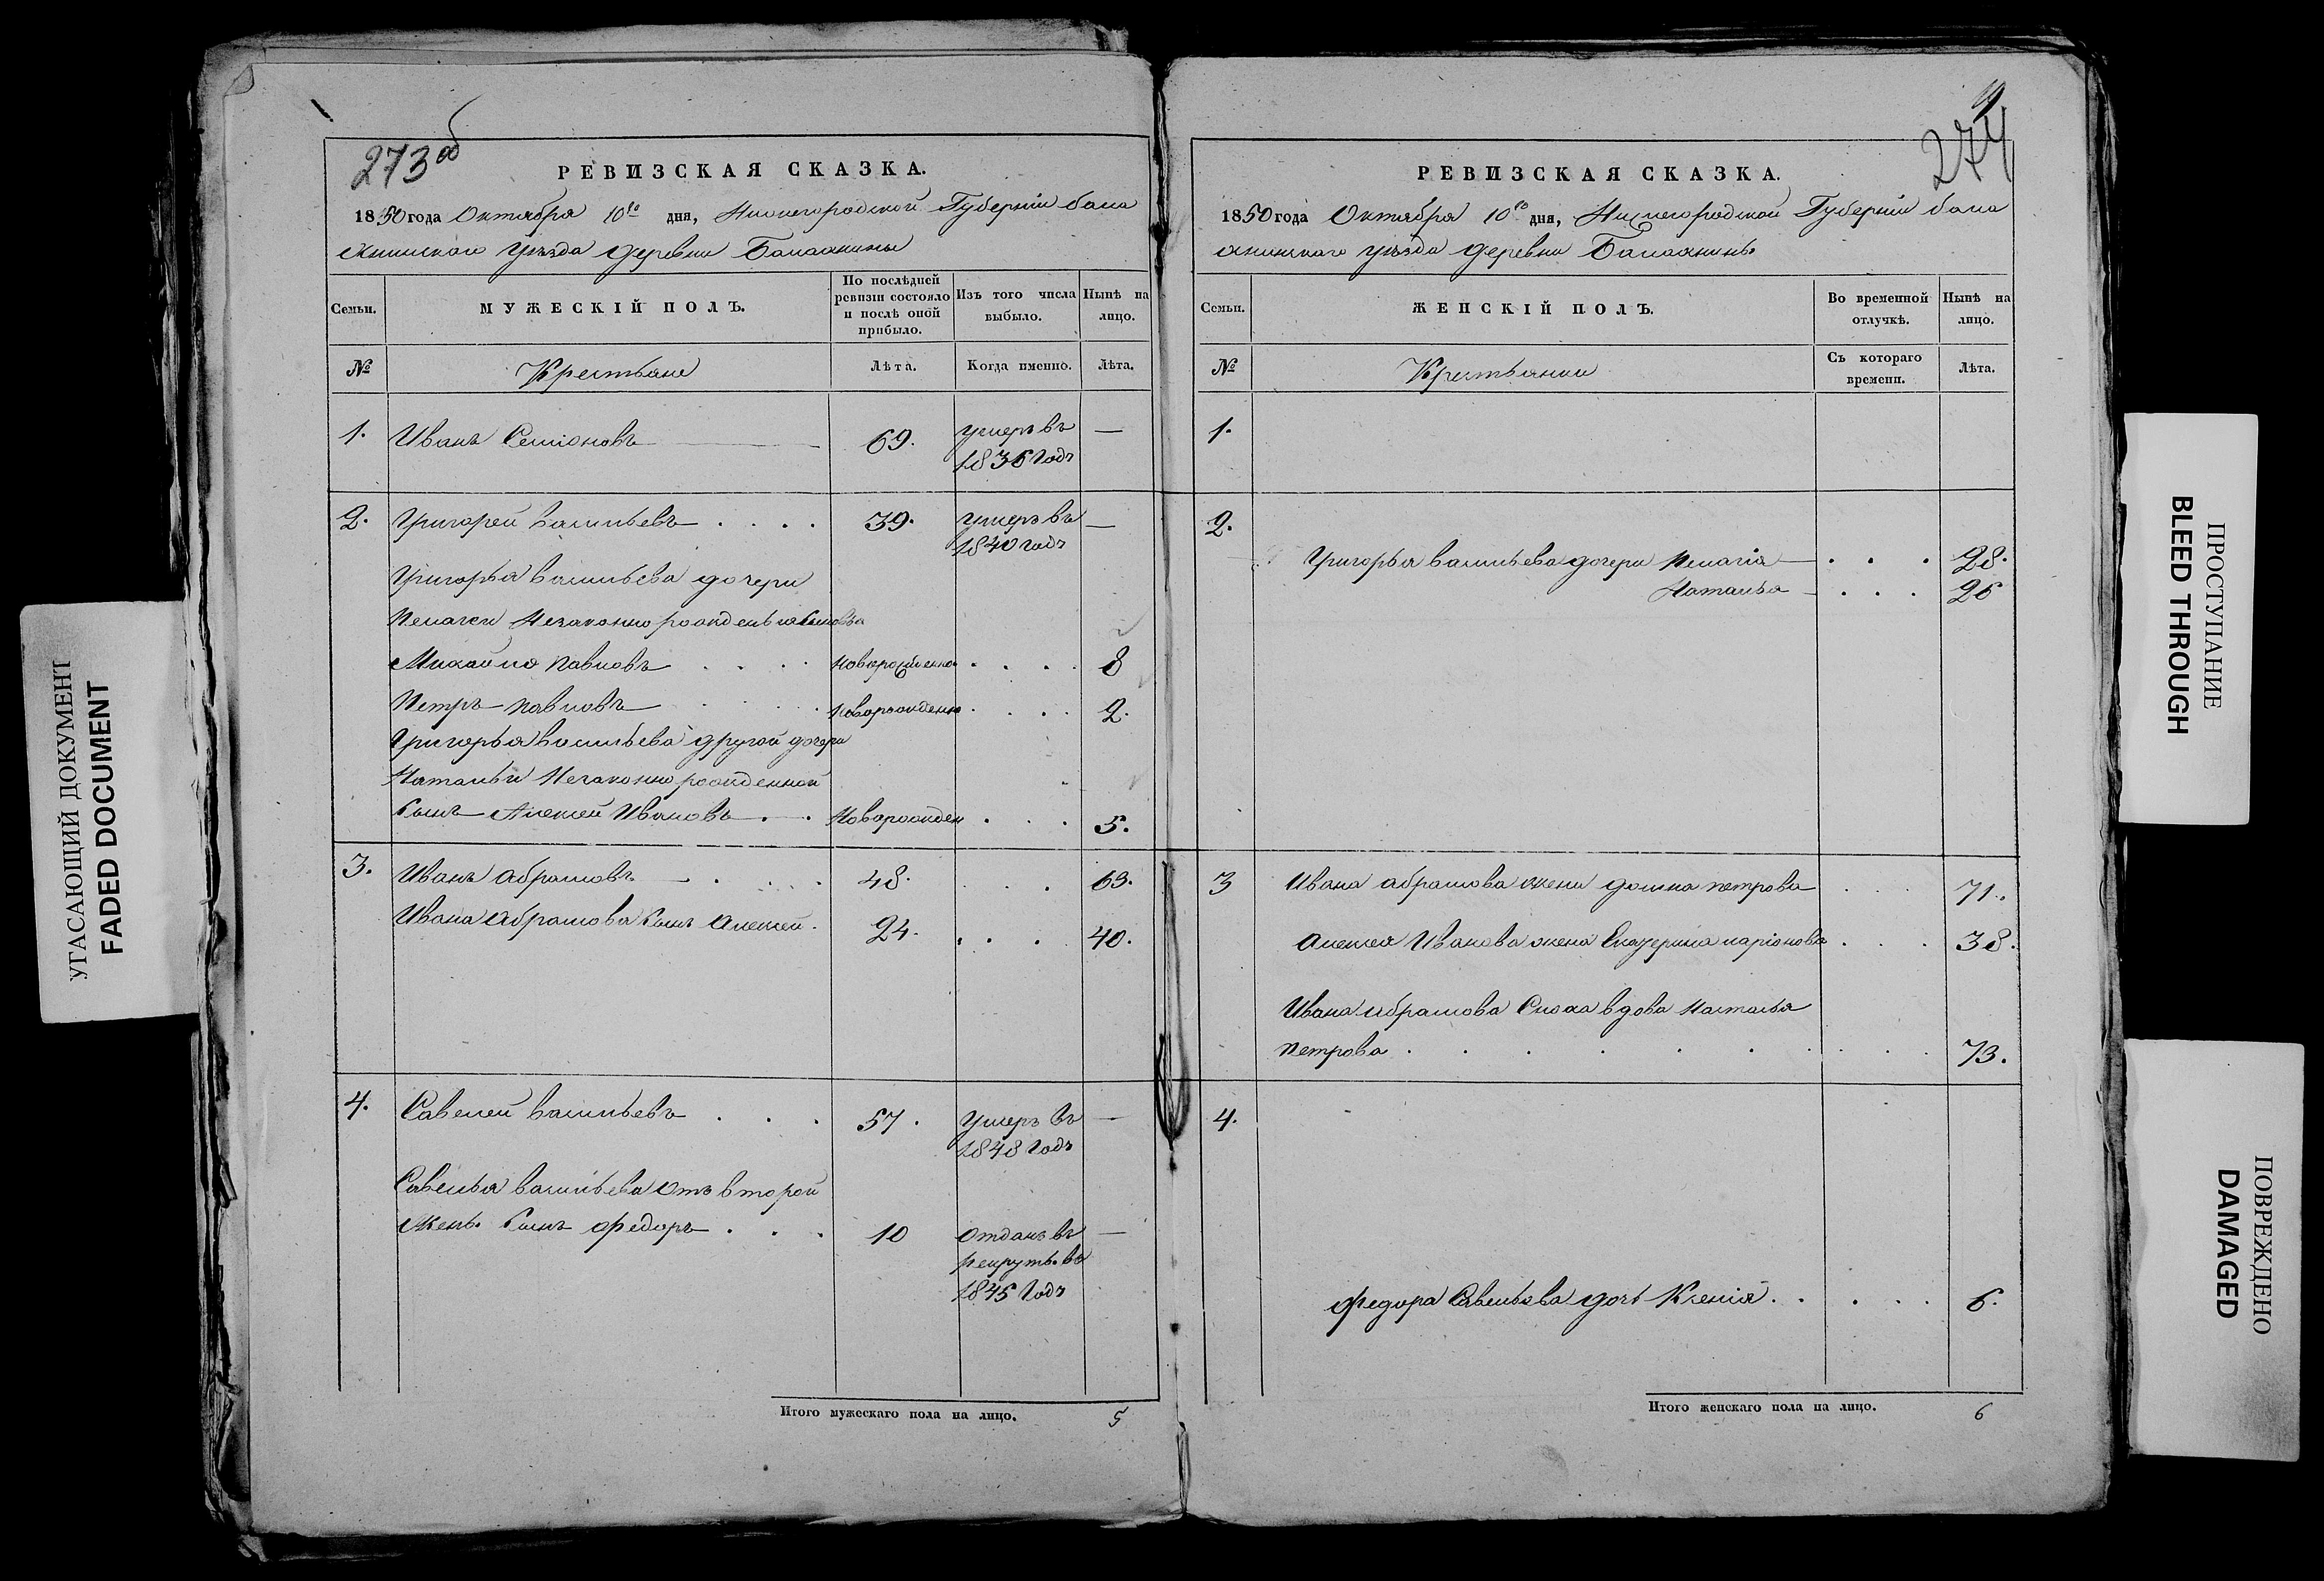 273 об
РЕВИЗСКАЯ СКАЗКА.
1850 года Октября 10го дня, Нижегородской Губерніи бала
хнинскаго Уѣзда деревни
Семьи.
МУЖЕСКІЙ ПОЛЪ.
По послѣдней ревизіи состояло и послѣ оной прибыло.
Изъ того числа выбыло.
Нынѣ на лицо.
№
Крестьяне
Лѣта.
Когда именно.
Лѣта.
1. Иванъ Семіоновъ 69. умеръ въ —
1836 годѣ
2. Григорей васильевъ 39. умеръ въ —
1840 годѣ
Григорья васильева дочери
Пелагеи Незаконно рожденныя сыновья
Михайло павловъ новорожденно 8
Петръ павловъ новорожденно 2.
Григорья васильева другой дочери
Натальи Незаконно рожденной
сынъ Алексей Ивановъ Новорожден 5.
3. Иванъ абрамовъ 48. 63.
Ивана абрамова сынъ алексей. 24. 40.
4. Савелей васильевъ 57. умеръ въ —
1848 годѣ
Савелья васильева отъ второй
жены сынъ федоръ 10 отданъ въ —
рекруты въ
1845 годѣ
Итого мужескаго пола на лицо. 5
274
РЕВИЗСКАЯ СКАЗКА.
1850 года Октября 10го дня, Нижегородской Губерніи бала
хнинскаго уѣзда деревни
Семьи.
ЖЕНСКІЙ ПОЛЪ.
Во временной отлучкѣ.
Нынѣ на лицо.
№
Крестьянки
Съ котораго времени.
Лѣта.
1.
2.
Григорья васильева дочери Пелагія 28.
Наталья 26
3 Ивана абрамова жена домна петрова 71.
алексея Иванова жена Екатерина ларіонова 38.
Ивана абрамова Сноха вдова наталья
петрова 73.
4.
федора Савельева дочь Ксенія 6.
Итого женскаго пола на лицо. 6
УГАСАЮЩИЙ ДОКУМЕНТ
FADED DOCUMENT
ПРОСТУПАНИЕ
BLEED THROUGH
ПОВРЕЖДЕНО
DAMAGED